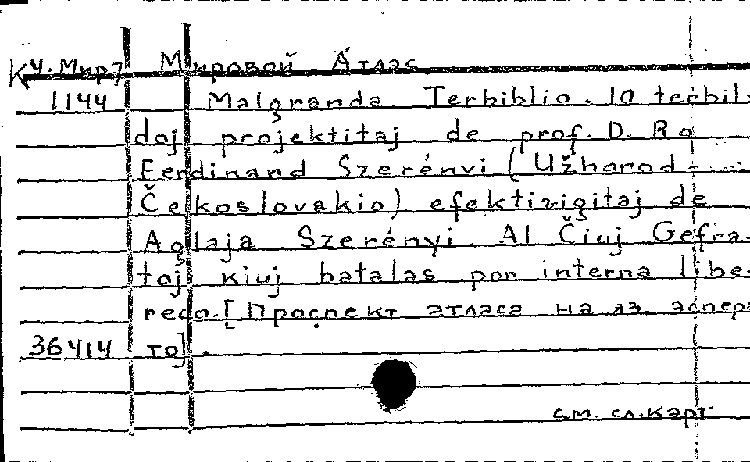 К ч. Мир7 Мировой Атлас
1144 Malgranda Terbiblio. 10 terbil-
doj projektitaj de prof. D. Ro
Ferdinand Szerényi (Užhorod -
Čeĥoslovakio) efektivigitaj de
Aglaja Szerényi. Al Ĉiuj Gefra-
toj kiuj batalas por interna libe-
reco. [Проспект атласа на яз. эспер-
36414 то].
см. сл. карт.